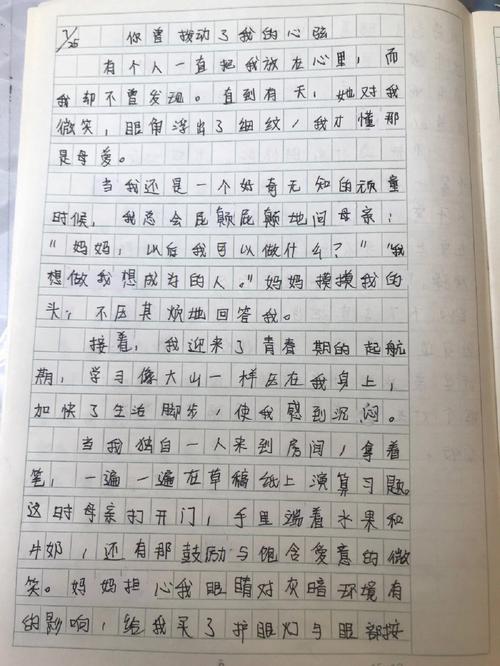 7/25
你曾拨动了我的心弦
有个人一直把我放在心里，而
我却不曾发现。直到有天，她对我
微笑，眼角浮出了细纹，我才懂那
是母爱。
当我还是一个好奇无知的顽童
时候，我总会屁颠屁颠地问母亲：
“妈妈，以后我可以做什么？”“我
想做我想成为的人。”妈妈摸摸我的
头，不压其烦地回答我。
接着，我迎来了青春期的起航
期，学习像大山一样压在我身上，
加快了生活脚步，使我感到沉闷。
当我独自一人来到房间，拿着
笔，一遍一遍在草稿纸上演算习题。
这时母亲打开门，手里端着水果和
牛奶，还有那鼓励与饱含爱意的微
笑。妈妈担心我眼睛对灰暗环境有
的影响，给我买了护眼灯与眼部按